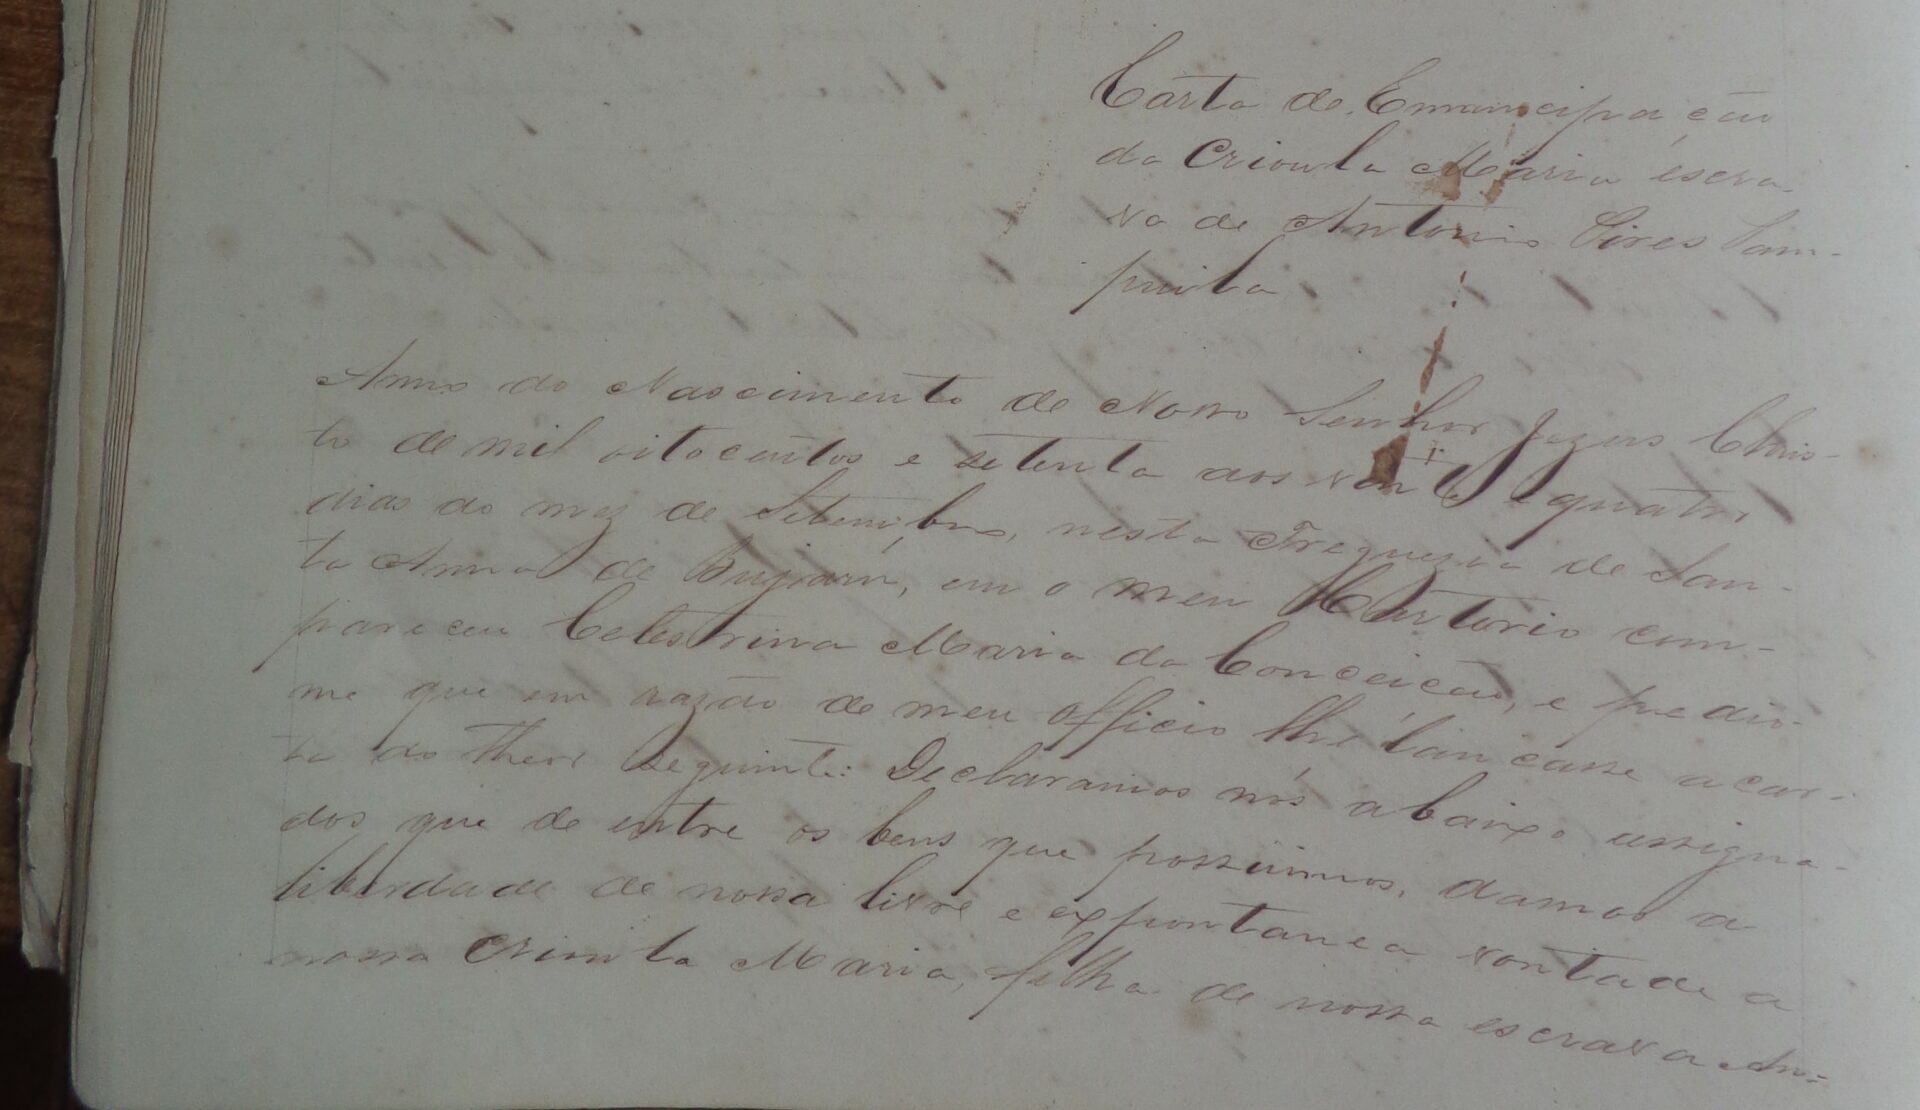 Carta de Emancipação
da Crioula Maria escra-
va de Antonio Pires Sam-
puiba
Anno do Nascimento de Nosso Senhor Jezus Chris-
to de mil oitocentos e setenta aos vinte e quatro
dias do mez de Setembro, nesta Freguezia de San-
ta Anna de Bujarú, em o meu Cartorio com-
pareceu Celestrina Maria da Conceição, e pedio-
me que em razão de meu officio lhe lançasse a car-
ta do theor seguinte: Declaramos nós abaixo assigna-
dos que de entre os bens que possuimos, damos a
liberdade de nossa livre e expontanea vontade a
nossa Crioula Maria, filha de nossa escrava An-